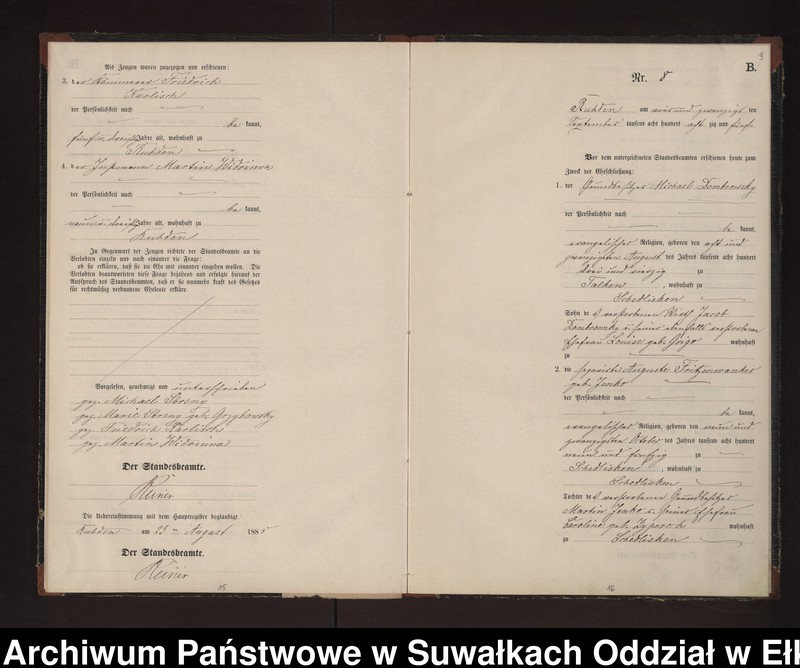 Als Zeugen waren zugezogen und erschienen:
3. der Kämmerer Friedrich
Karlisch
der Persönlichkeit nach
be kannt,
fünf u. dreißig Jahre alt, wohnhaft zu
Ruhden
4. der Inßmann Martin Widrinna
der Persönlichkeit nach
be kannt,
neun u. dreißig Jahre alt, wohnhaft zu
Ruhden
In Gegenwart der Zeugen richtete der Standesbeamte an die
Verlobten einzeln und nach einander die Frage:
ob sie erklären, daß sie die Ehe mit einander eingehen wollen. Die
Verlobten beantworteten diese Frage bejahend und erfolgte hierauf der
Ausspruch des Standesbeamten, daß er sie nunmehr kraft des Gesetzes
für rechtmäßig verbundene Eheleute erkläre.
Vorgelesen, genehmigt und unterschrieben
gez. Michael
gez. Marie geb. Grzybowsky
gez. Friedrich Karlisch
gez. Martin Widrinna
Der Standesbeamte.
Reiner
Die Uebereinstimmung mit dem Hauptregister beglaubigt.
Ruhden am 23ten August 1885
Der Standesbeamte.
Reiner
15
9
B.
Nr. 8
Ruhden am vier und zwanzigsten
September tausend acht hundert acht zig und fünf
Vor dem unterzeichneten Standesbeamten erschienen heute zum
Zweck der Eheschließung:
1. der Grundbesitzer Michael Dombrowsky
der Persönlichkeit nach
be kannt,
evangelischer Religion, geboren den acht und
zwanzigsten August des Jahres tausend acht hundert
drei und vierzig zu
Talken, wohnhaft zu
Schedlisken
Sohn des verstorbenen Wirth Jacob
Dombrowsky u. seiner ebenfalls verstorbenen
Ehefrau Louise geb. Grigo wohnhaft
zu
2. die separirte Auguste Fritzenwanker
geb. Jenko
der Persönlichkeit nach
be kannt,
evangelischer Religion, geboren den neun und
zwanzigsten October des Jahres tausend acht hundert
neun und fünfzig zu
Schedlisken, wohnhaft zu
Schedlisken
Tochter des verstorbenen Grundbesitzer
Martin Jenko u. seiner Ehefrau
Caroline geb. Zyporch wohnhaft
zu Schedlisken
16
Archiwum Państwowe w Suwałkach Oddział w Eł